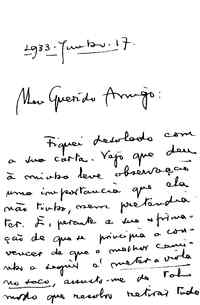 1933. Junho. 17.
Meu Querido Araujo:
Fiquei desolado com
a sua carta. Vejo que deu
à minha leve observação
uma importancia que ela
não tinha, nem pretendia
ter. E, perante a sua afirma-
ção de que se principia a con-
vencer de que o melhor cami-
nho a seguir é meter a viola
no saco, assusto-me de tal
modo que resolvo retirar tudo